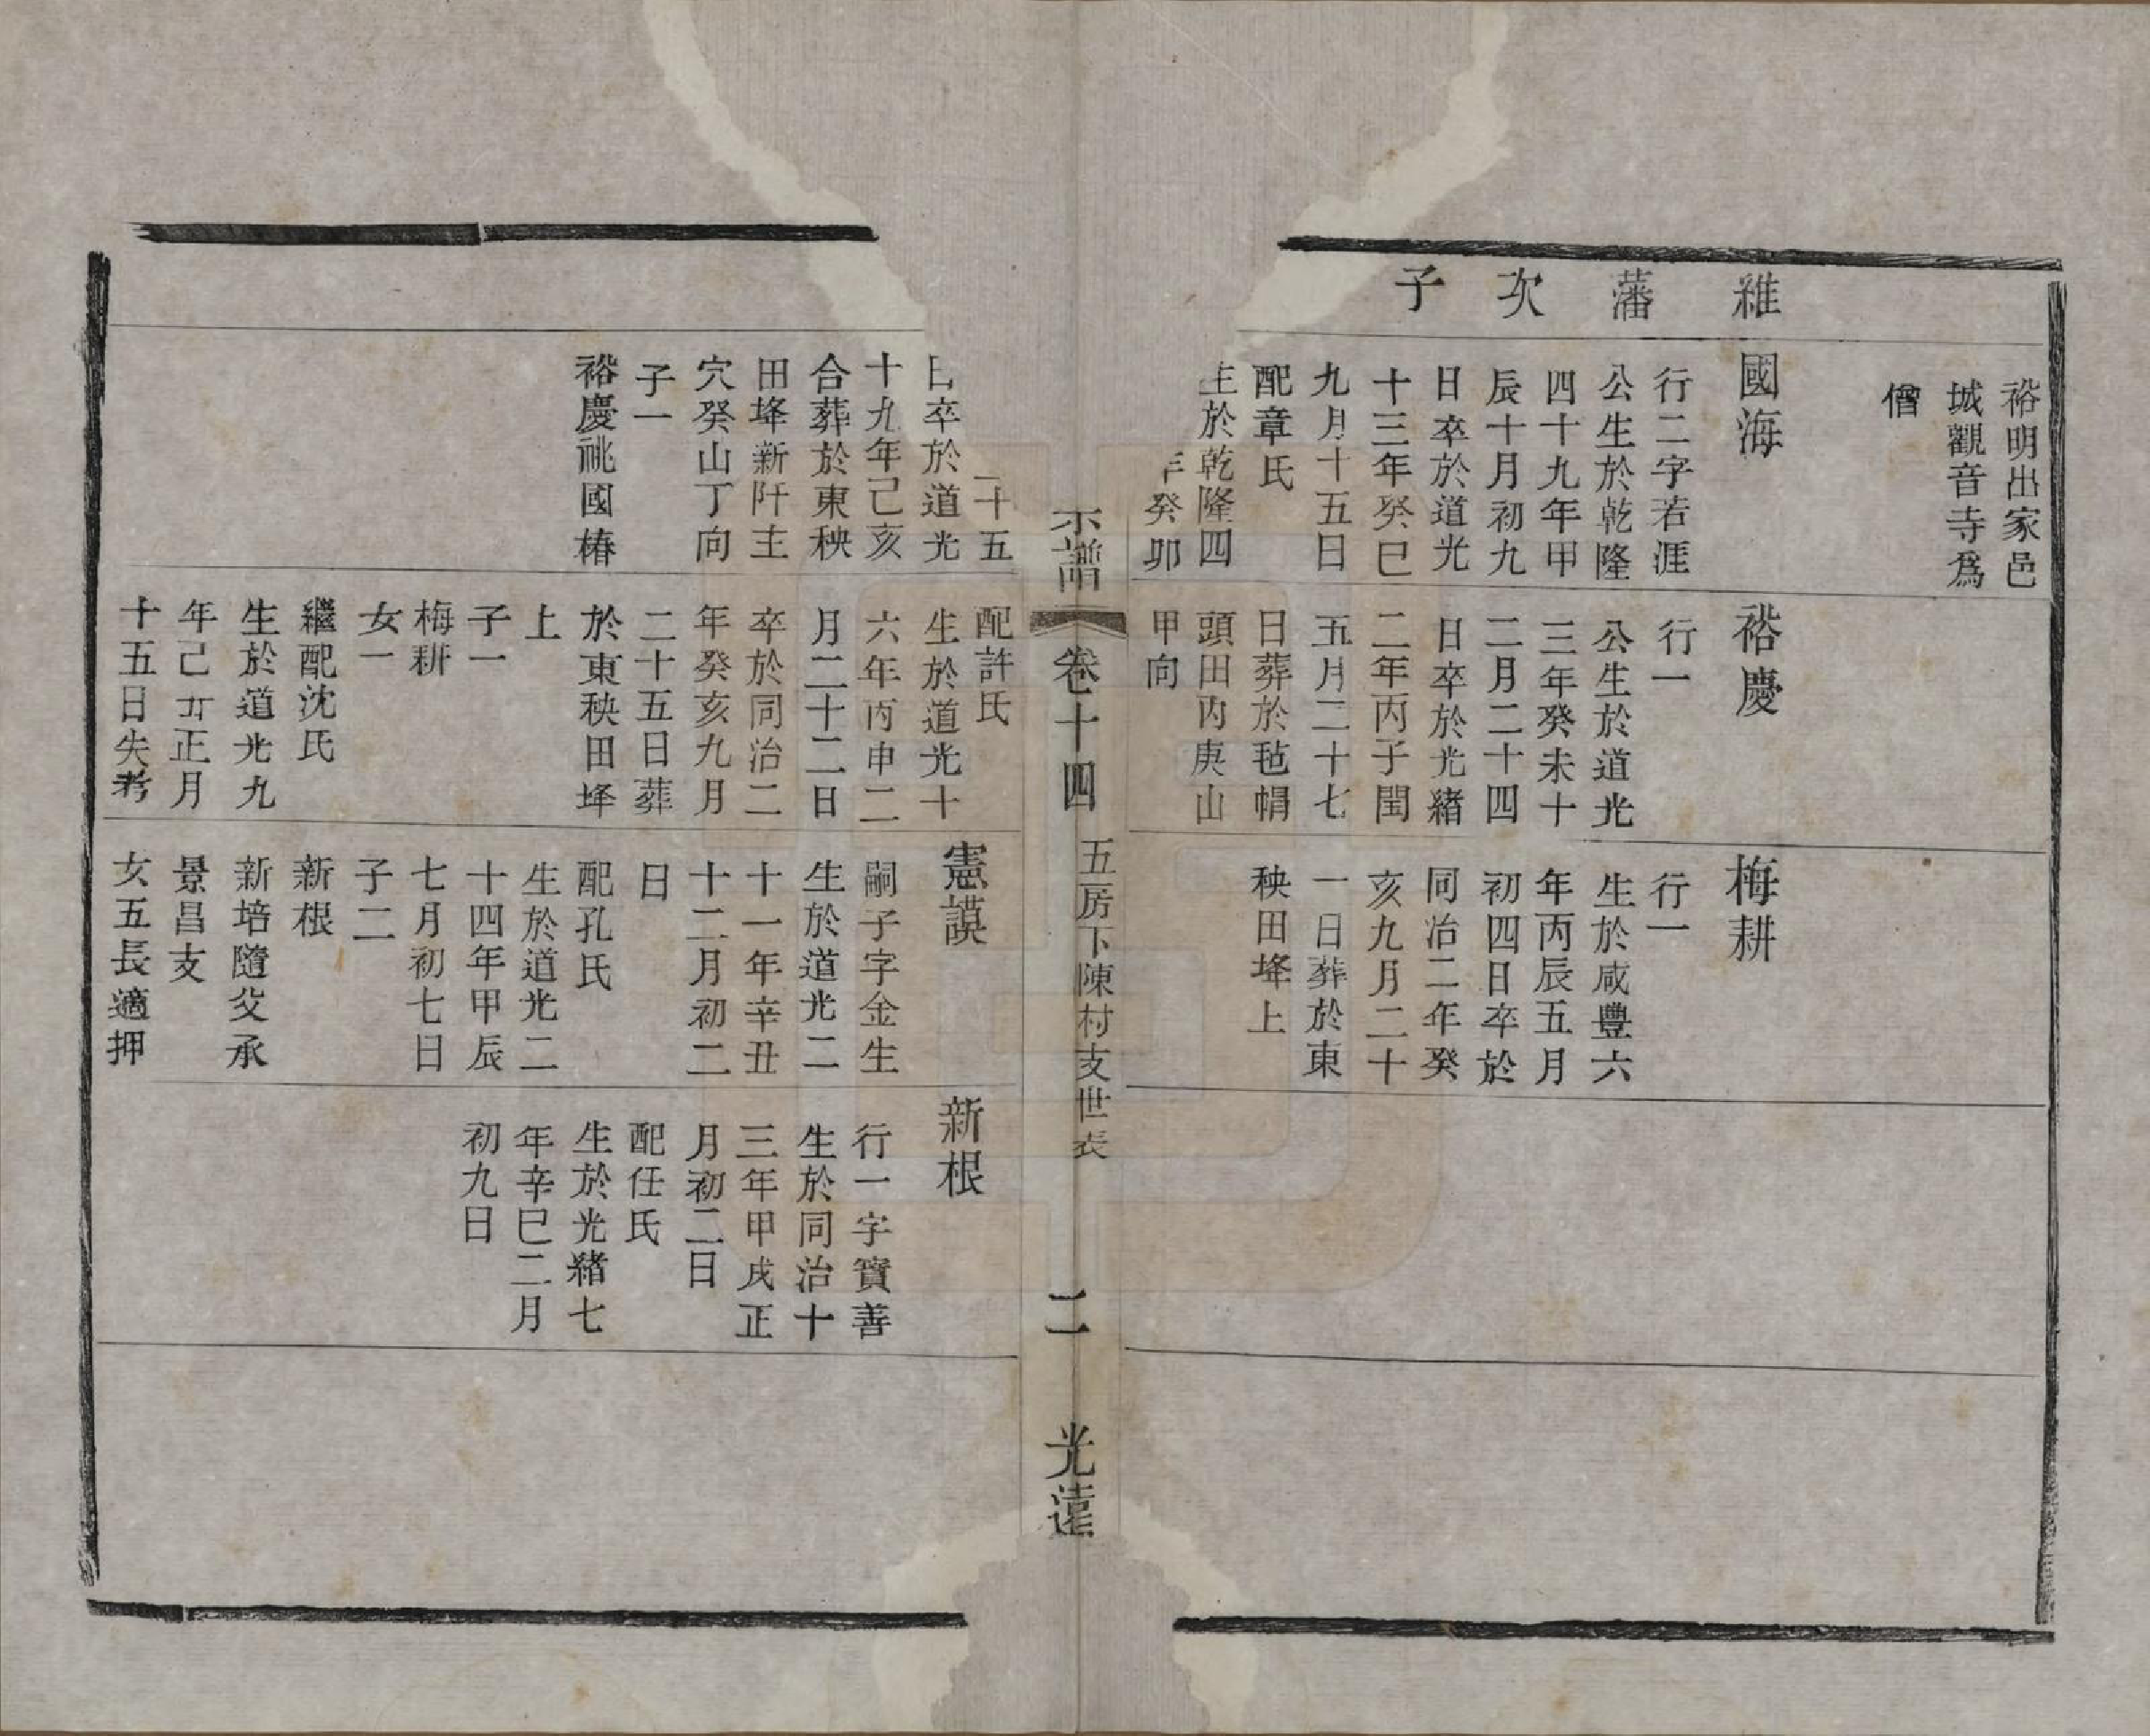 維藩次子
裕明出家邑
城觀音寺爲
僧
國海
行二字若涯
公生於乾隆
四十九年甲
辰十月初九
日卒於道光
十三年癸巳
九月十五日
配章氏
生於乾隆四
年癸卯
裕慶
行一
公生於道光
三年癸未十
二月二十四
日卒於光緒
二年丙子閏
五月二十七
日葬於毡帽
頭田內庚山
甲向
梅耕
行一
生於咸豐六
年丙辰五月
初四日卒於
同治二年癸
亥九月二十
一日葬於東
秧田埄上
宗譜
卷十四
五房下陳村支世表
二
光遠
二十五
日卒於道光
十九年己亥
合葬於東秧
田埄新阡主
穴癸山丁向
子一
裕慶祧國椿
配許氏
生於道光十
六年丙申二
月二十二日
卒於同治二
年癸亥九月
二十五日葬
於東秧田埄
上
子一
梅耕
女一
繼配沈氏
生於道光九
年己丑正月
十五日失考
憲謨
嗣子字金生
生於道光二
十一年辛丑
十二月初二
日
配孔氏
生於道光二
十四年甲辰
七月初七日
子二
新根
新培隨父承
景昌支
女五長適押
新根
行一字寶善
生於同治十
三年甲戌正
月初二日
配任氏
生於光緒七
年辛巳二月
初九日